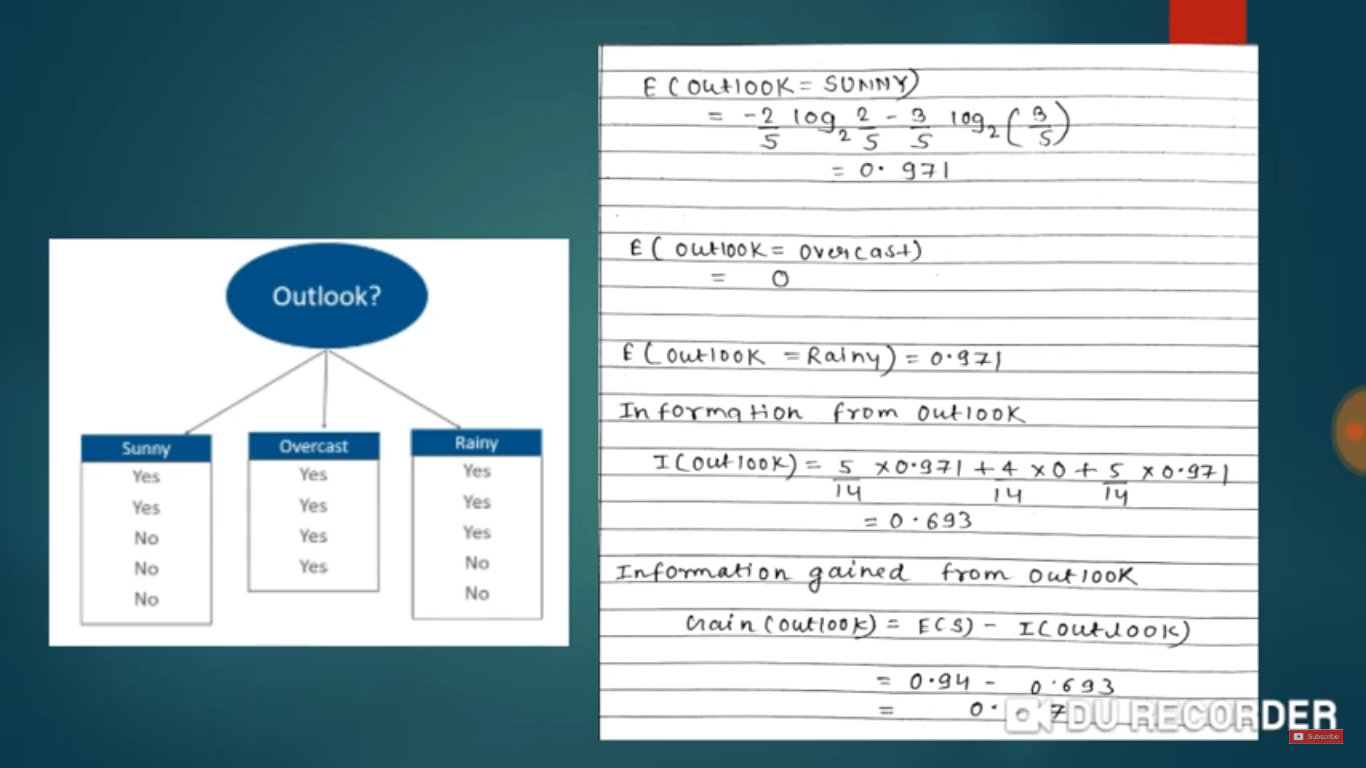 Outlook?
Sunny
Yes
Yes
No
No
No
Overcast
Yes
Yes
Yes
Yes
Rainy
Yes
Yes
Yes
No
No
E (Outlook = SUNNY)
= -2/5 log2 2/5 - 3/5 log2 (3/5)
= 0.971
E (Outlook = Overcast)
= 0
E (Outlook = Rainy) = 0.971
Information from Outlook
I(Outlook) = 5/14 ×0.971 + 4/14 ×0 + 5/14 ×0.971
= 0.693
Information gained from Outlook
Gain(Outlook) = E(S) - I(Outlook)
= 0.94 - 0.693
= 0.
DU RECORDER
Subscribe